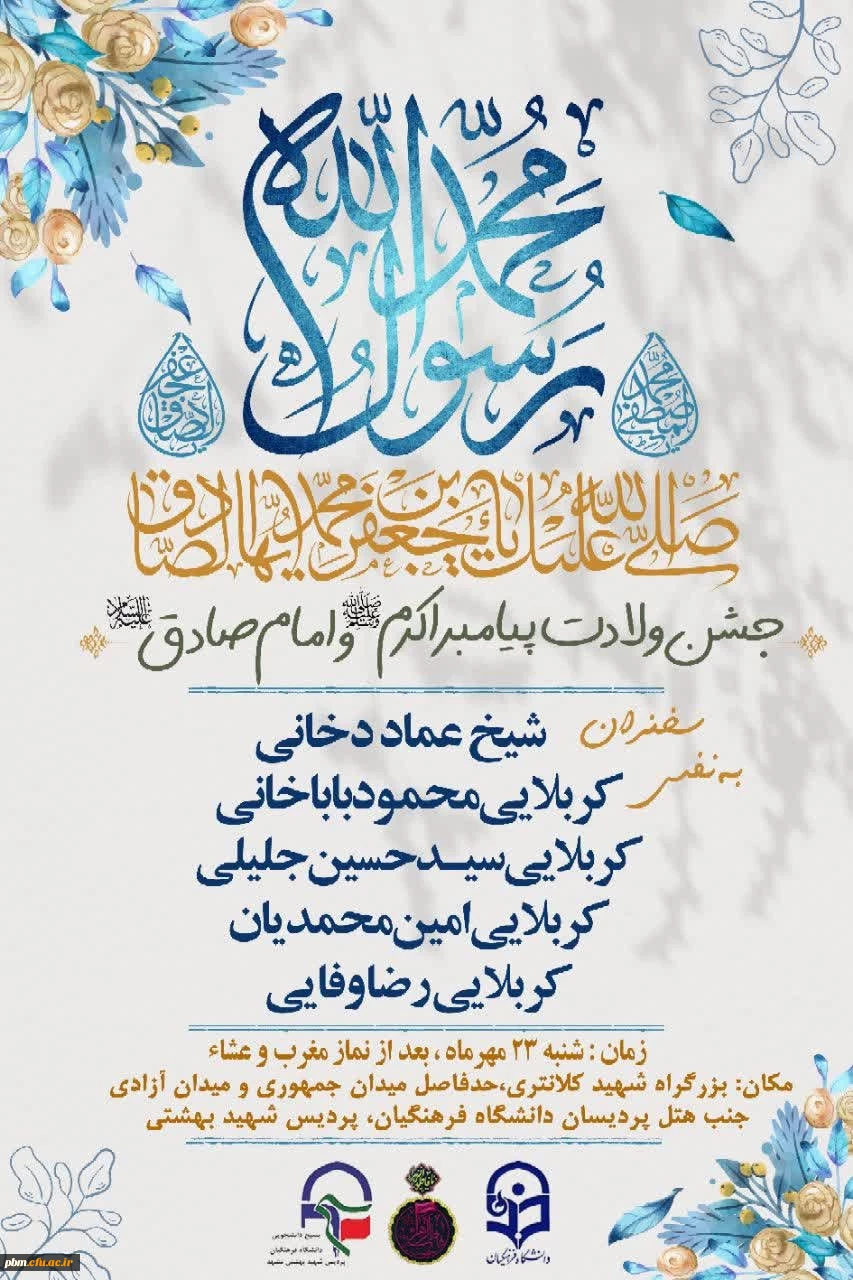 محمد رسول الله
جعفر الصادق
محمد المصطفی
صلی الله علیک یا جعفر بن محمد ایها الصادق
جشن ولادت پیامبر اکرم صلی الله علیه وسلم و امام صادق علیه السلام
سخنران
شیخ عماد دخانی
به نفس
کربلایی محمود باباخانی
کربلایی سید حسین جلیلی
کربلایی امین محمدیان
کربلایی رضا وفایی
زمان : شنبه ۲۳ مهرماه ، بعد از نماز مغرب و عشاء
مکان: بزرگراه شهید کلانتری،حدفاصل میدان جمهوری و میدان آزادی
جنب هتل پردیسان دانشگاه فرهنگیان، پردیس شهید بهشتی
بسیج دانشجویی
دانشگاه فرهنگیان
پردیس شهید بهشتی مشهد
دانشگاه فرهنگیان
pbm.cfu.ac.ir